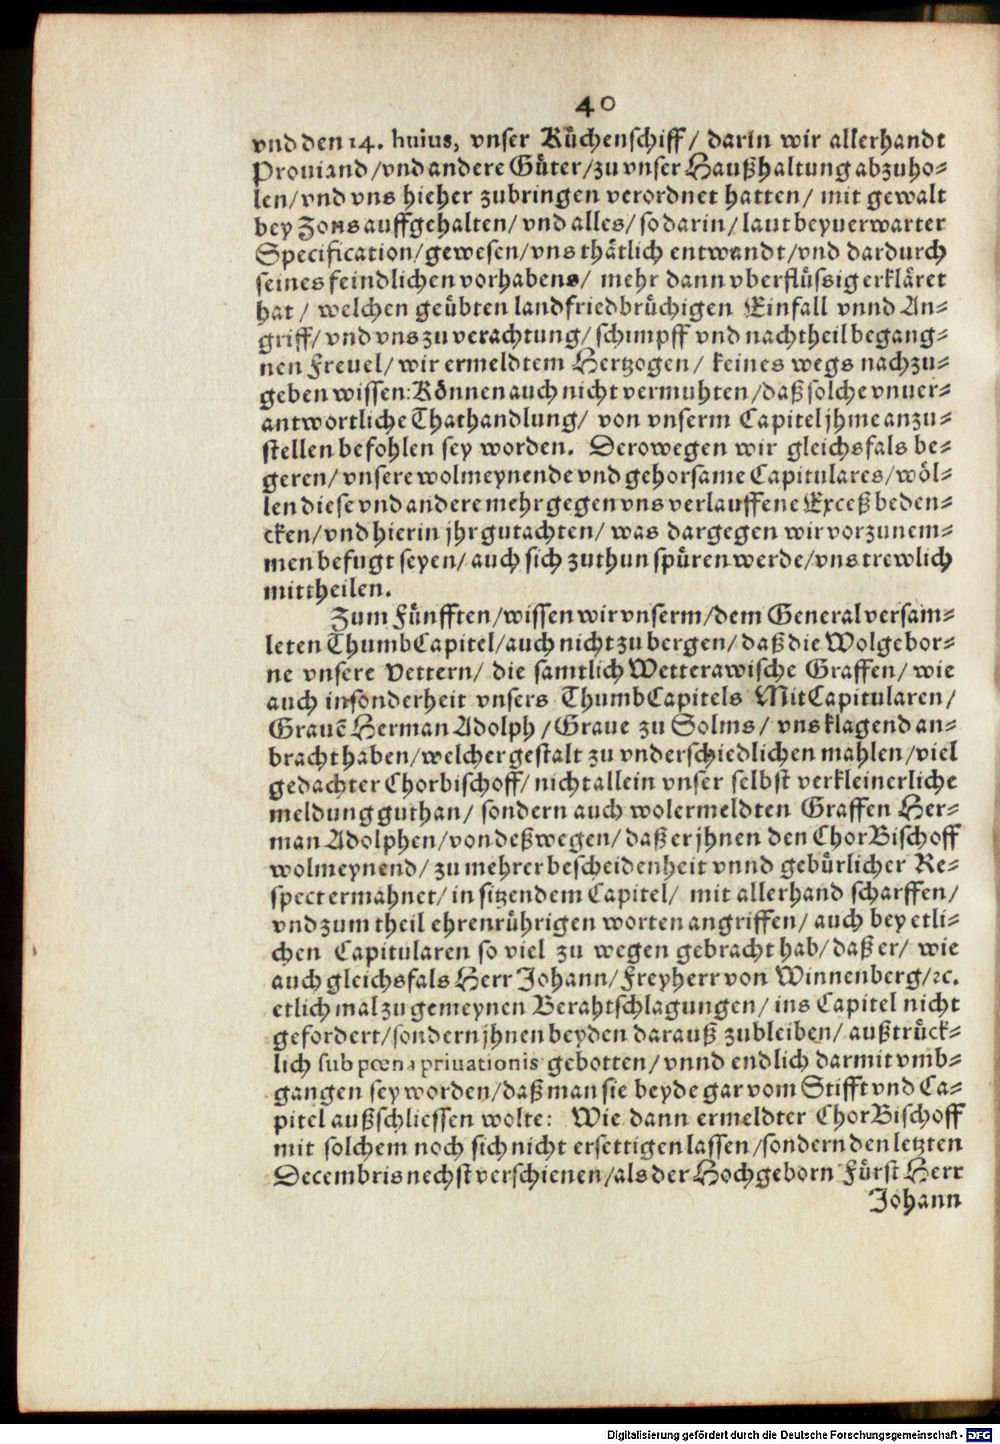 40
vnd den 14. huius, vnser Küchenschiff/ darin wir allerhandt
Prouiand/vnd andere Güter/zu vnser Haußhaltung abzuho-
len/vnd vns hieher zubringen verordnet hatten/ mit gewalt
bey Zons auffgehalten/ vnd alles/ so darin/ laut beyuerwarter
Specification/gewesen/vns thätlich entwendt/vnd dardurch
seines feindlichen vorhabens/ mehr dann vberflüssig erkläret
hat/ welchen geübten landfriedbrüchigen Einfall vnnd An-
griff/ vnd vns zu verachtung/ schimpff vnd nachtheil begang-
nen Freuel/ wir ermeldtem Hertzogen/ keines wegs nachzu-
geben wissen: Können auch nicht vermuhten/daß solche vnuer-
antwortliche Thathandlung/ von vnserm Capitel jhme anzu-
stellen befohlen sey worden. Derowegen wir gleichsfals be-
geren/ vnsere wolmeynende vnd gehorsame Capitulares/wöl-
len diese vnd andere mehr gegen vns verlauffene Exceß beden-
cken/vnd hierin jhr gutachten/ was dargegen wir vorzunem-
men befugt seyen/ auch sich zuthun spüren werde/vns trewlich
mittheilen.
Zum Fünfften/wissen wir vnserm/dem General versam-
leten ThumbCapitel/auch nicht zu bergen/ daß die Wolgebor-
ne vnsere Vettern/ die samtlich Wetterawische Graffen/ wie
auch insonderheit vnsers ThumbCapitels MitCapitularen/
Grauē Herman Adolph/Graue zu Solms/ vns klagend an-
bracht haben/welcher gestalt zu vnderschiedlichen mahlen/viel
gedachter Chorbischoff/nicht allein vnser selbst verkleinerliche
meldung guthan/ sondern auch wolermeldten Graffen Her-
man Adolphen/von deßwegen/daß er jhnen den ChorBischoff
wolmeynend/ zu mehrer bescheidenheit vnnd gebürlicher Re-
spect ermahnet/in sitzendem Capitel/ mit allerhand scharffen/
vnd zum theil ehrenrührigen worten angriffen/ auch bey etli-
chen Capitularen so viel zu wegen gebracht hab/daß er/ wie
auch gleichsfals Herr Johann/Freyherr von Winnenberg/ꝛc.
etlich mal zu gemeynen Berahtschlagungen/ ins Capitel nicht
gefordert/sondern jhnen beyden darauß zubleiben/ außtrück-
lich sub pœna priuationis gebotten/vnnd endlich darmit vmb-
gangen sey worden/daß man sie beyde gar vom Stifft vnd Ca-
pitel außschliessen wolte: Wie dann ermeldter ChorBischoff
mit solchem noch sich nicht ersettigen lassen/sondern den letzten
Decembris nechst verschienen/als der Hochgeborn Fürst Herr
Johann
Digitalisierung gefördert durch die Deutsche Forschungsgemeinschaft - DFG